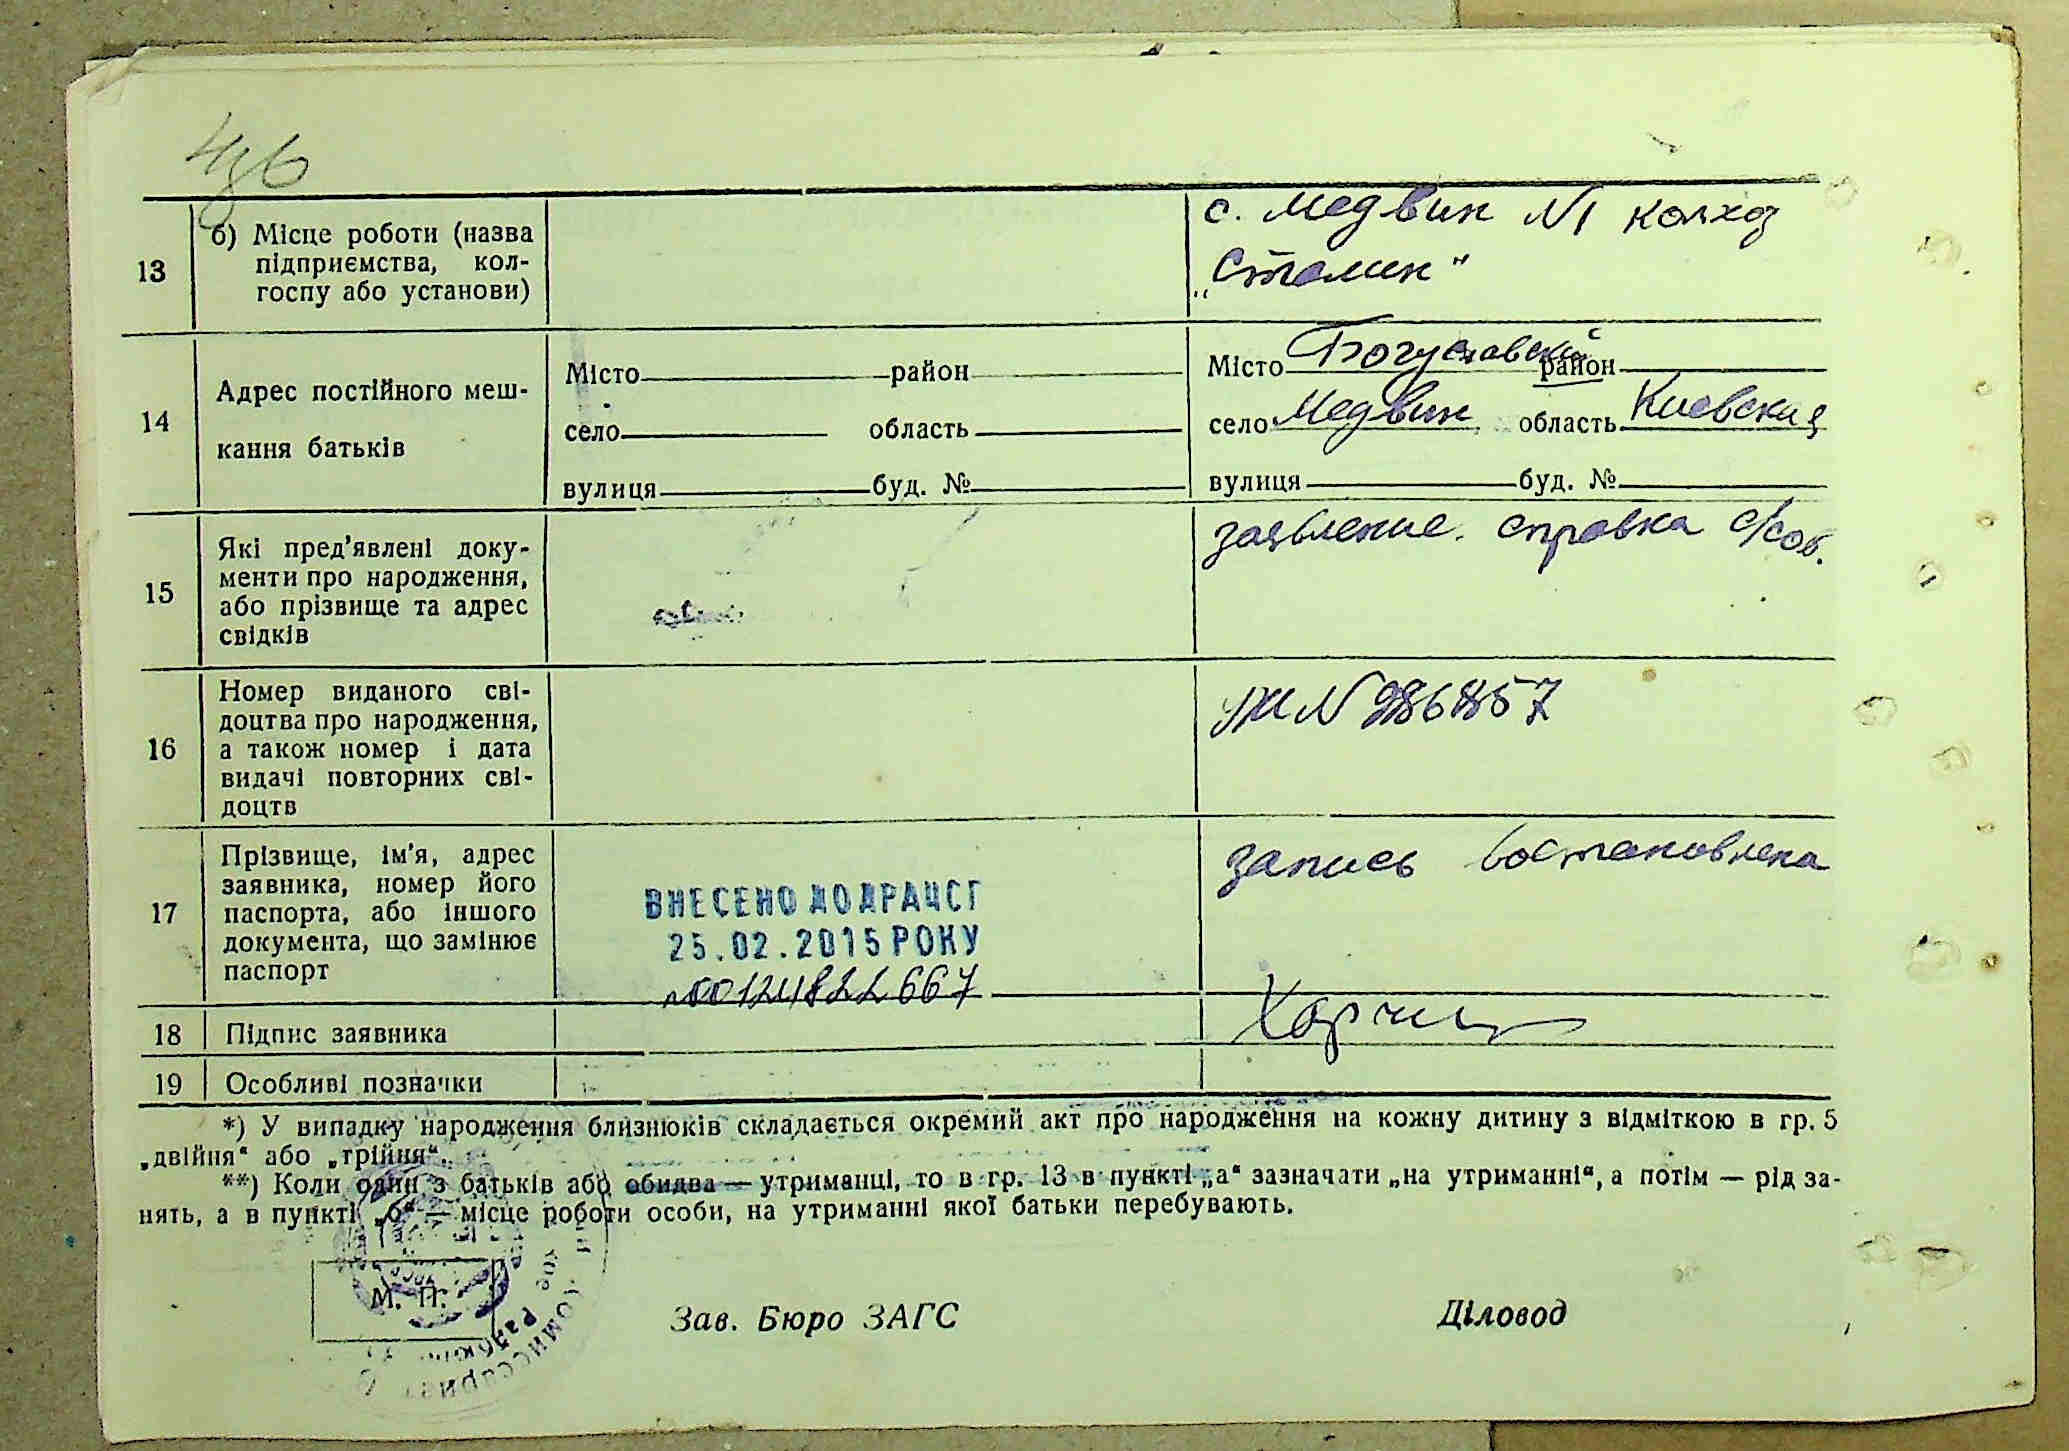 13
б) Місце роботи (назва
підприємства, кол-
госпу або установи)
с. Медвин №1 колхоз
„Сталин"
14
Адрес постійного меш-
кання батьків
Місто район
село область
вулиця буд. №
Місто Богуславский район
село Медвин область Киевская
вулиця буд. №
15
Які пред'явлені доку-
менти про народження,
або прізвище та адрес
свідків
заявление. справка с/сов.
16
Номер виданого сві-
доцтва про народження,
а також номер і дата
видачі повторних сві-
доцтв
17
Прізвище, ім'я, адрес
заявника, номер його
паспорта, або іншого
документа, що замінює
паспорт
ВНЕСЕНО ДО ДРАЦСГ
25.02.2015 РОКУ
№00124822667
запись востановлена
18 Підпис заявника
19 Особливі позначки
*) У випадку народження близнюків складається окремий акт про народження на кожну дитину з відміткою в гр. 5
„двійня“ або „трійня“.
**) Коли один з батьків або обидва — утриманці, то в гр. 13 в пункті „а“ зазначати „на утриманні“, а потім — рід за-
нять, а в пункті „б“ — місце роботи особи, на утриманні якої батьки перебувають.
М. П.
Зав. Бюро ЗАГС
Діловод